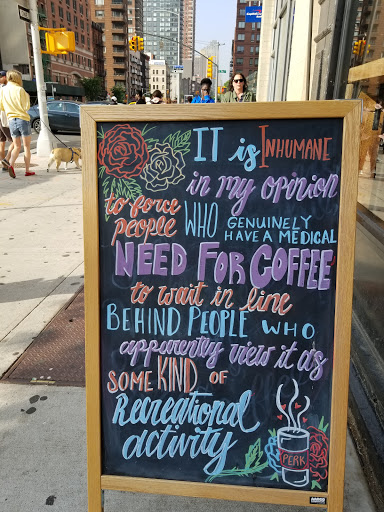 IT is INHUMANE
in my opinion
to force
people WHO GENUINELY
HAVE A MEDICAL
NEED FOR COFFEE
to wait in line
BEHIND PEOPLE WHO
apparently view it as
SOME KIND OF
Recreational
activity
PERK